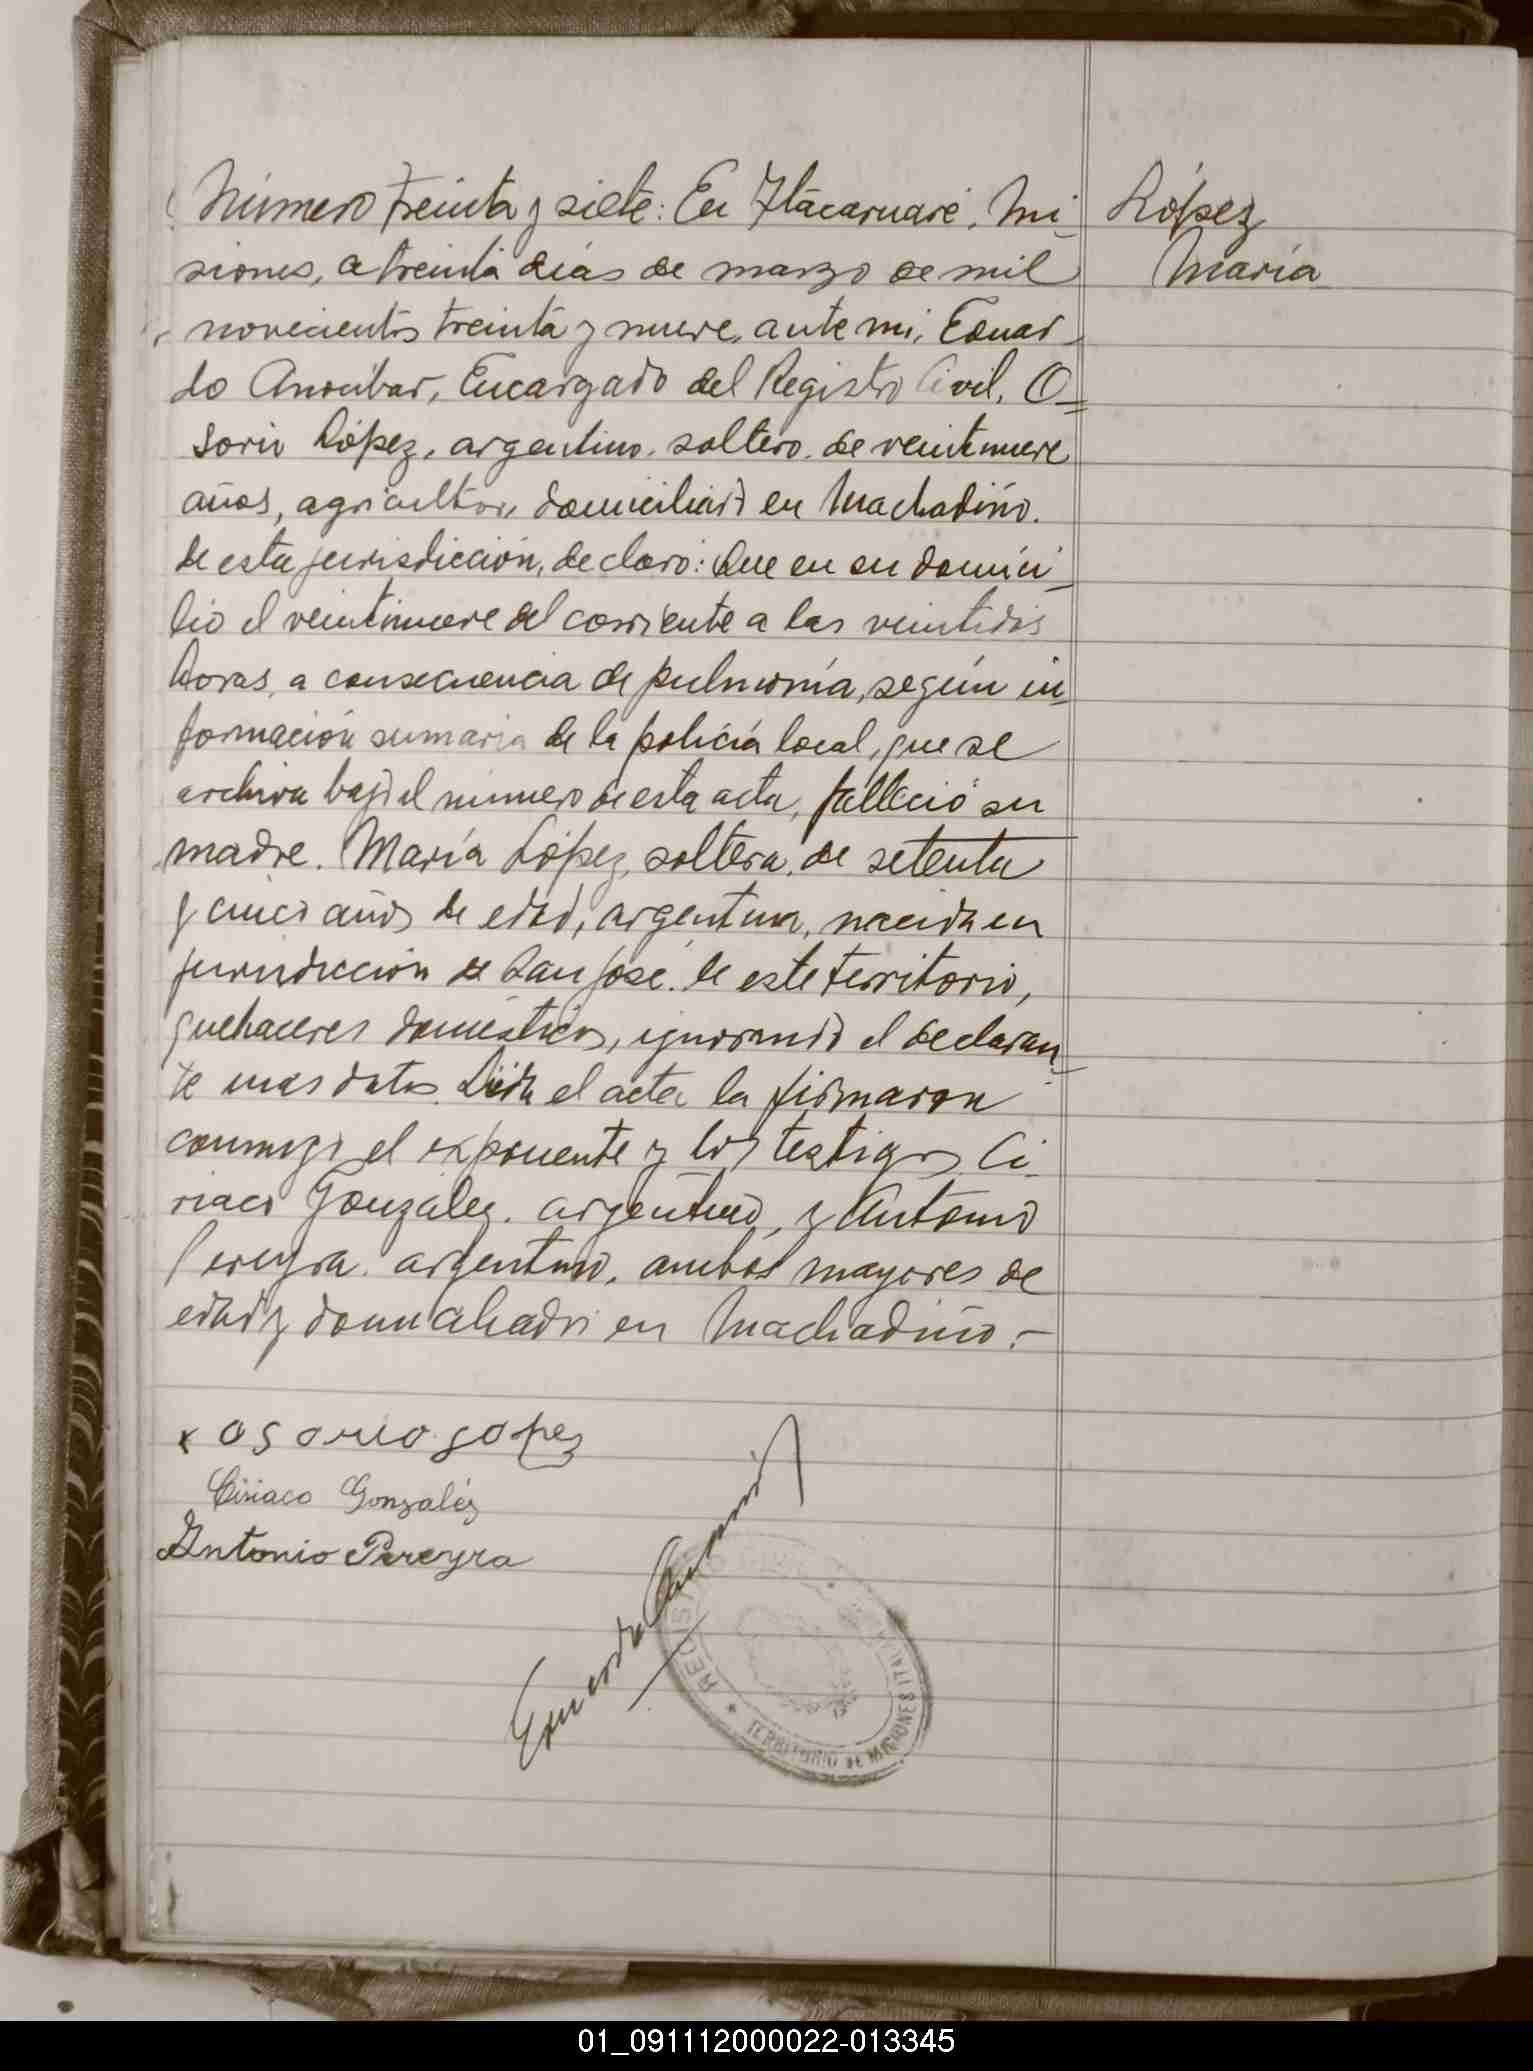 Número treinta y siete: En Itacaruaré, Mi-
siones, a treinta días de marzo de mil
novecientos treinta y nueve, ante mi, Eduar-
do Anocíbar, Encargado del Registro Civil, O-
sorio López, argentino, soltero, de veintinueve
años, agricultor, domiciliado en Machadiño,
de esta jurisdicción, declaró: Que en su domici-
lio el veintinueve del corriente a las veintidos
horas, a consecuencia de pulmonía, según in-
formación sumaria de la policía local, que se
archiva bajo el número de esta acta, falleció su
madre. María López, soltera, de setenta
y cinco años de edad, argentina, nacida en
jurisdicción de San José, de este territorio,
quehaceres domésticos, ignorando el declaran-
te mas datos. Leída el acta la firmaron
conmigo el exponente y los testigos Ci-
riaco González, argentino, y Antonio
Pereyra, argentino, ambos mayores de
edad y domiciliados en Machadiño.-
López
María
x osorio Lopez
Ciriaco Gonzaléz
Antonio Pereyra
Eduardo
REGISTRO CIVIL
TERRITORIO DE MISIONES